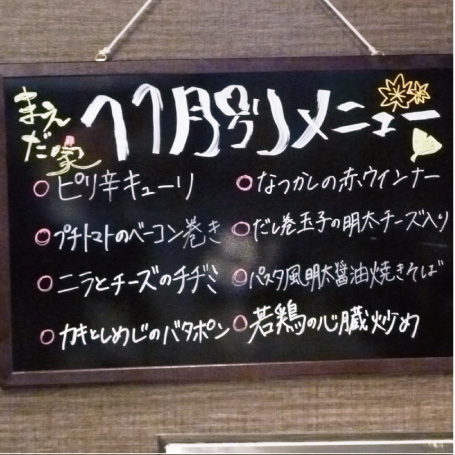 まえだ家
11月別メニュー
ピリ辛キューリ
プチトマトのベーコン巻き
ニラとチーズのチヂミ
カキとしめじのバタポン
なつかしの赤ウインナー
だし巻玉子の明太チーズ入り
パスタ風明太醤油焼きそば
若鶏の心臓炒め